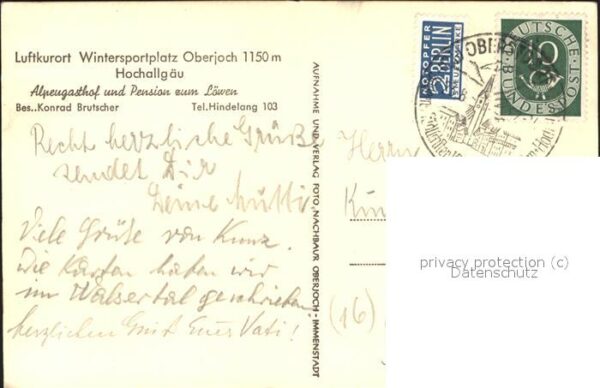 Luftkurort Wintersportplatz Oberjoch 1150 m
Hochallgäu
Alpengasthof und Pension zum Löwen
Bes.. Konrad Brutscher Tel. Hindelang 103
Recht herzliche Grüße
sendet Dir
Deine Mutti
Viele Grüße von Kunz.
Die Karten haben wir
im Walsertal geschrieben
herzlichen Gruß Euer Vati!
AUFNAHME UND VERLAG FOTO „NACHBAUR OBERJOCH - IMMENSTADT
NOTOPFER
2 BERLIN
STEUERMARKE
DEUTSCHE
10
BUNDESPOST
Herrn
(16)
privacy protection (c)
Datenschutz